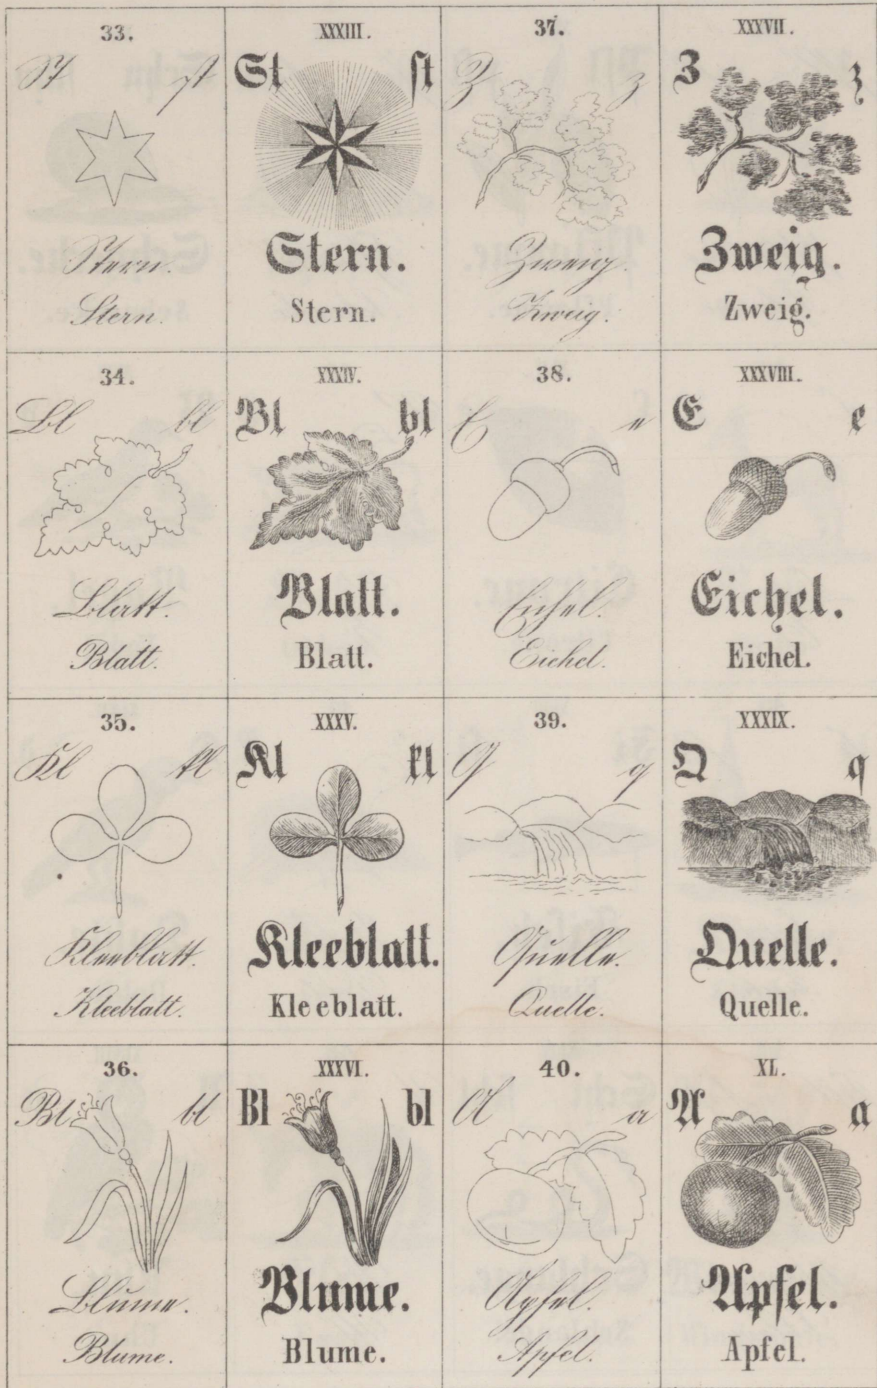 33.
St st
Stern.
Stern.
XXXIII.
St ſt
Stern.
Stern.
37.
Z z
Zweig.
Zweig.
XXXVII.
Z z
Zweig.
Zweig.
34.
Bl bl
Blatt.
Blatt.
XXXIV.
Bl bl
Blatt.
Blatt.
38.
E e
Eichel.
Eichel.
XXXVIII.
E e
Eichel.
Eichel.
35.
Kl kl
Kleeblatt.
Kleeblatt.
XXXV.
Kl kl
Kleeblatt.
Kleeblatt.
39.
Q q
Quelle.
Quelle.
XXXIX.
Q q
Quelle.
Quelle.
36.
Bl bl
Blume.
Blume.
XXXVI.
Bl bl
Blume.
Blume.
40.
A a
Apfel.
Apfel.
XL.
A a
Apfel.
Apfel.